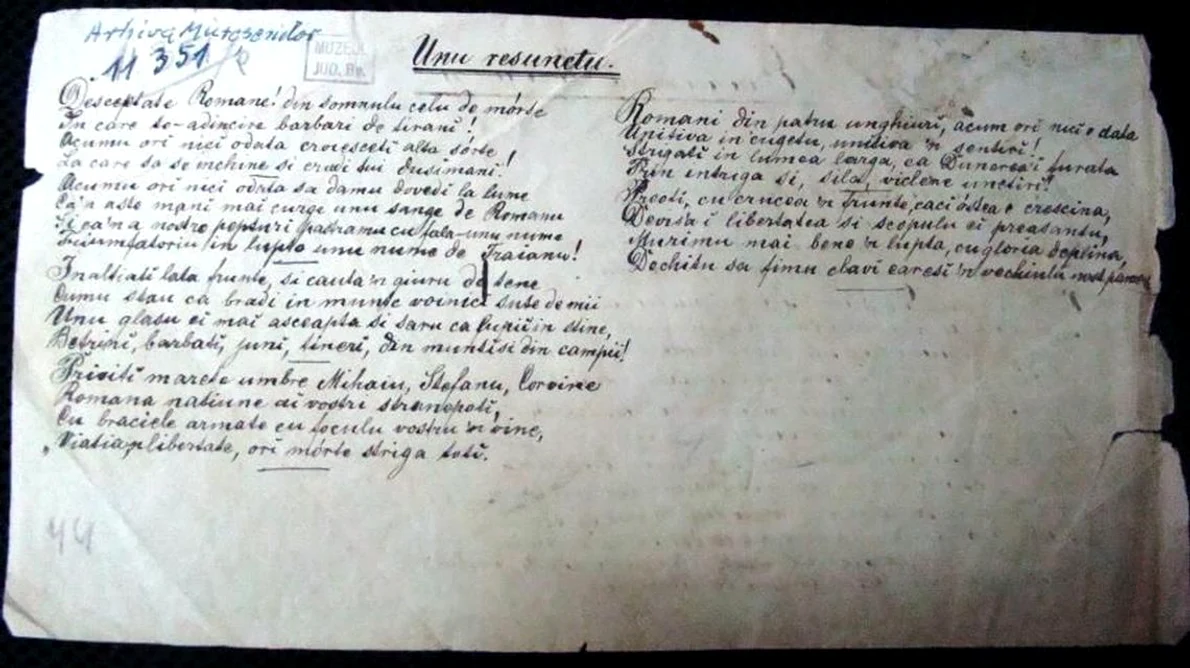 Arhiva Muresenilor
11 351
MUZEUL
JUD. Bv.
Unu resunetu.
Desceptate Romane! din somnulu celu de mórte
In care te-adincire barbari de tirani!
Acumu ori nici odata croiesceti alta sórte!
La care sa se inchine si crudi tui dusimani!
Acumu ori nici odata sa damu dovedi la lume
Ca'n aste mani mai curge unu sange de Romanu
Si ca'n a nostre pepturi pastramu cu fala-unu nume
Triumfatoriu in lupte unu nume de Traianu!
Inaltiati lata frunte, si cauta 'n giuru de tene
Cumu stau ca bradi in munte voinici sute de mii
Unu glasu ei mai asceapta si saru ca lupii in stine,
Betrini, barbati, juni, tineri, din munti si din campii!
Priviti marete umbre Mihaiu, Stefanu, Corvine
Romana natiune ai vostri stranepoti,
Cu braciele armate cu foculu vostru 'n vine,
„Viatia'n libertate, ori mórte striga toti.
Romani din patru unghiuri, acum ori nici o data
Uniti-va in cugetu, uniti-va 'n sentiri!
Strigati in lumea larga, ca Dunerea-i furata
Prin intriga si, sila, viclene unetiri!
Preoti, cu crucea 'n frunte, caci óstea e crescina,
Devisa-i libertatea si scopulu ei preasantu,
Murimu mai bene 'n lupta, cu gloria deplina,
Dechitu sa fimu sclavi earesi 'n vechiulu nost
44